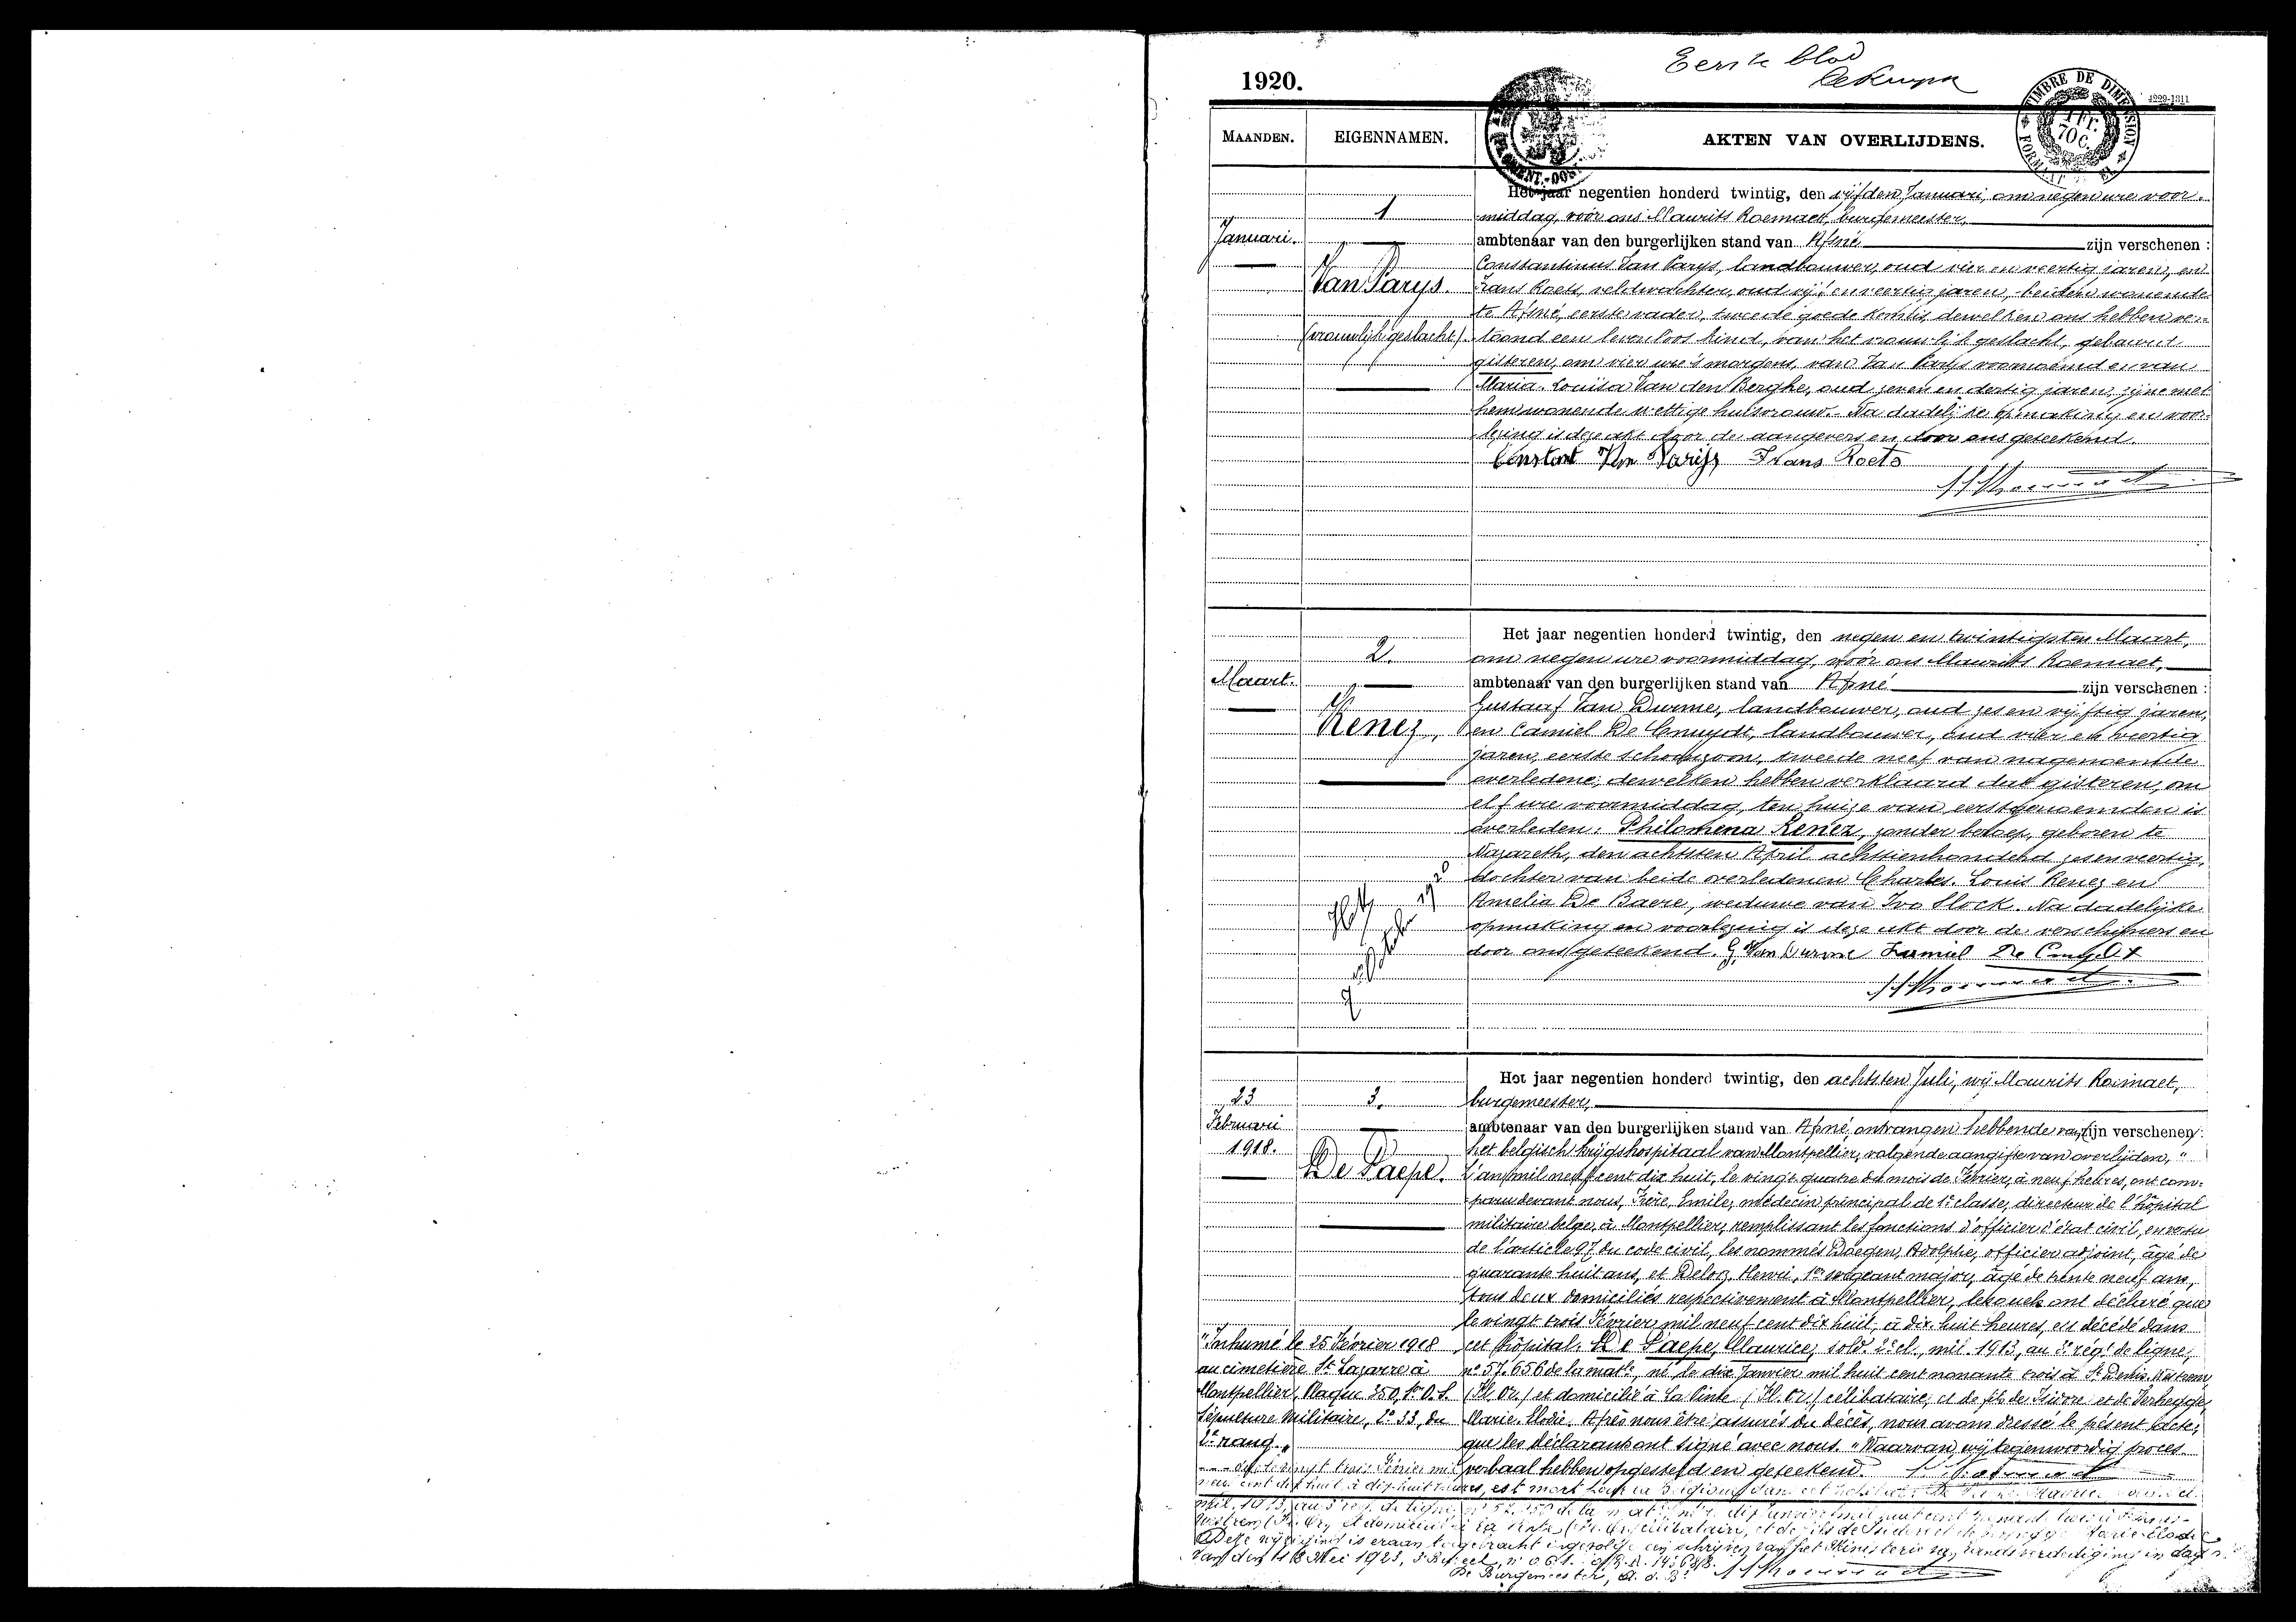 Eerste blad
1920.
TIMBRE DE DIMENSION
1 Fr.
70 C.
MAANDEN.
EIGENNAMEN.
AKTEN VAN OVERLIJDENS.
Het jaar negentien honderd twintig, den vijfden Januari, om negen ure voor-
1
middag, vóór ons Maurits Roemaet, burgemeester,
Januari.
ambtenaar van den burgerlijken stand van Afsné zijn verschenen :
Constantinus Van Parys, landbouwer, oud vier en veertig jaren, en
Van Parys.
Frans Roets, veldwachter, oud vijf en veertig jaren, beiden wonende
te Afsné, eerste vader, tweede goede kennis, dewelken ons hebben ver-
(vrouwlijk geslacht)
toond een levenloos kind, van het vrouwlijk geslacht, gebaard
gisteren, om vier ure 's morgens, van Van Parys voornoemd en van
Maria-Louisa Van den Berghe, oud zeven en dertig jaren, zijne met
hem wonende wettige huisvrouw. Na dadelijke opmaking en voor-
lezing is deze akt door de aangevers en door ons geteekend.
Constant Van Parijs Frans Roets
Het jaar negentien honderd twintig, den negen en twintigsten Maart,
2.
om negen ure voormiddag, vóór ons Maurits Roemaet,
Maart.
ambtenaar van den burgerlijken stand van Afsné zijn verschenen :
Gustaaf Van Durme, landbouwer, oud zes en vijftig jaren,
Renez,
en Camiel De Cnuydt, landbouwer, oud vier en veertig
jaren, eerste schoonzoon, tweede neef van nagenoemde
overledene, dewelken hebben verklaard dat gisteren, om
elf ure voormiddag, ten huize van eerstgenoemden is
overleden: Philomena Renez, zonder beroep, geboren te
Nazareth, den achtsten April achttienhonderd zes en veertig,
dochter van beide overledenen Charles-Louis Renez en
Amelia De Baere, weduwe van Ivo Slock. Na dadelijke
opmaking en voorlezing is deze akt door de verschijners en
door ons geteekend. G. Van Durme Kamiel De Cnuydt
Het jaar negentien honderd twintig, den achtsten Juli, wij Maurits Roemaet,
23
3.
burgemeester,
Februari
ambtenaar van den burgerlijken stand van Afsné, ontvangen hebbende van zijn verschenen :
1918.
het belgisch krijgshospitaal van Montpellier, volgende aangifte van overlijden, "
De Paepe.
L'an mil neuf cent dix huit, le vingt quatre du mois de Février, à neuf heures, ont com-
paru devant nous, Frère, Emile, médecin principal de 1e classe, directeur de l'hôpital
militaire belge, à Montpellier, remplissant les fonctions d'officier d'état civil, en vertu
de l'article 97 du code civil, les nommés Daegen, Adolphe, officier adjoint, âgé de
quarante huit ans, et Deloz, Henri, 1er sergeant major, âgé de trente neuf ans,
tous deux domiciliés respectivement à Montpellier, lesquels ont déclaré que
le vingt trois Février mil neuf cent dix huit, à dix huit heures, est décédé dans
"Inhumé le 25 Février 1918
cet hôpital: De Paepe, Maurice, sold. 2e cl., mil. 1913, au 3e régt de ligne,
au cimetière St Lazarre à
no 57.656 de la matle, né le dix Janvier mil huit cent nonante trois à St Denis-Westrem,
Montpellier, Plaque 350,
(Fl. Or.) et domicilié à La Pinte (Fl. Or.) célibataire, et de fils de Isidore et de Verhegge,
Sépulture Militaire, no 33, du
Marie-Elodie. Après nous être assurés du décès, nous avons dressé le présent acte,
2e rang. "
que les déclarants ont signé avec nous. " Waarvan wij tegenwoordig proces-
que le vingt trois Février mil
verbaal hebben opgesteld en geteekend.
neuf cent dix huit à dix-huit heures, est mort
mil. 1913, au 3e rég. de ligne, no 57.656 de la matle, né le dix Janvier mil huit cent nonante trois à St Denis-
Westrem (Fl. Or.) et domicilié à La Pinte (Fl. Or.) célibataire, et de fils de Isidore et de Verhegge Marie-Elodie
Deze wijziging is eraan toegebracht ingevolge een schrijven van het Ministerie van Landsverdediging in dag
van den 18 Mei 1921,
De Burgemeester,